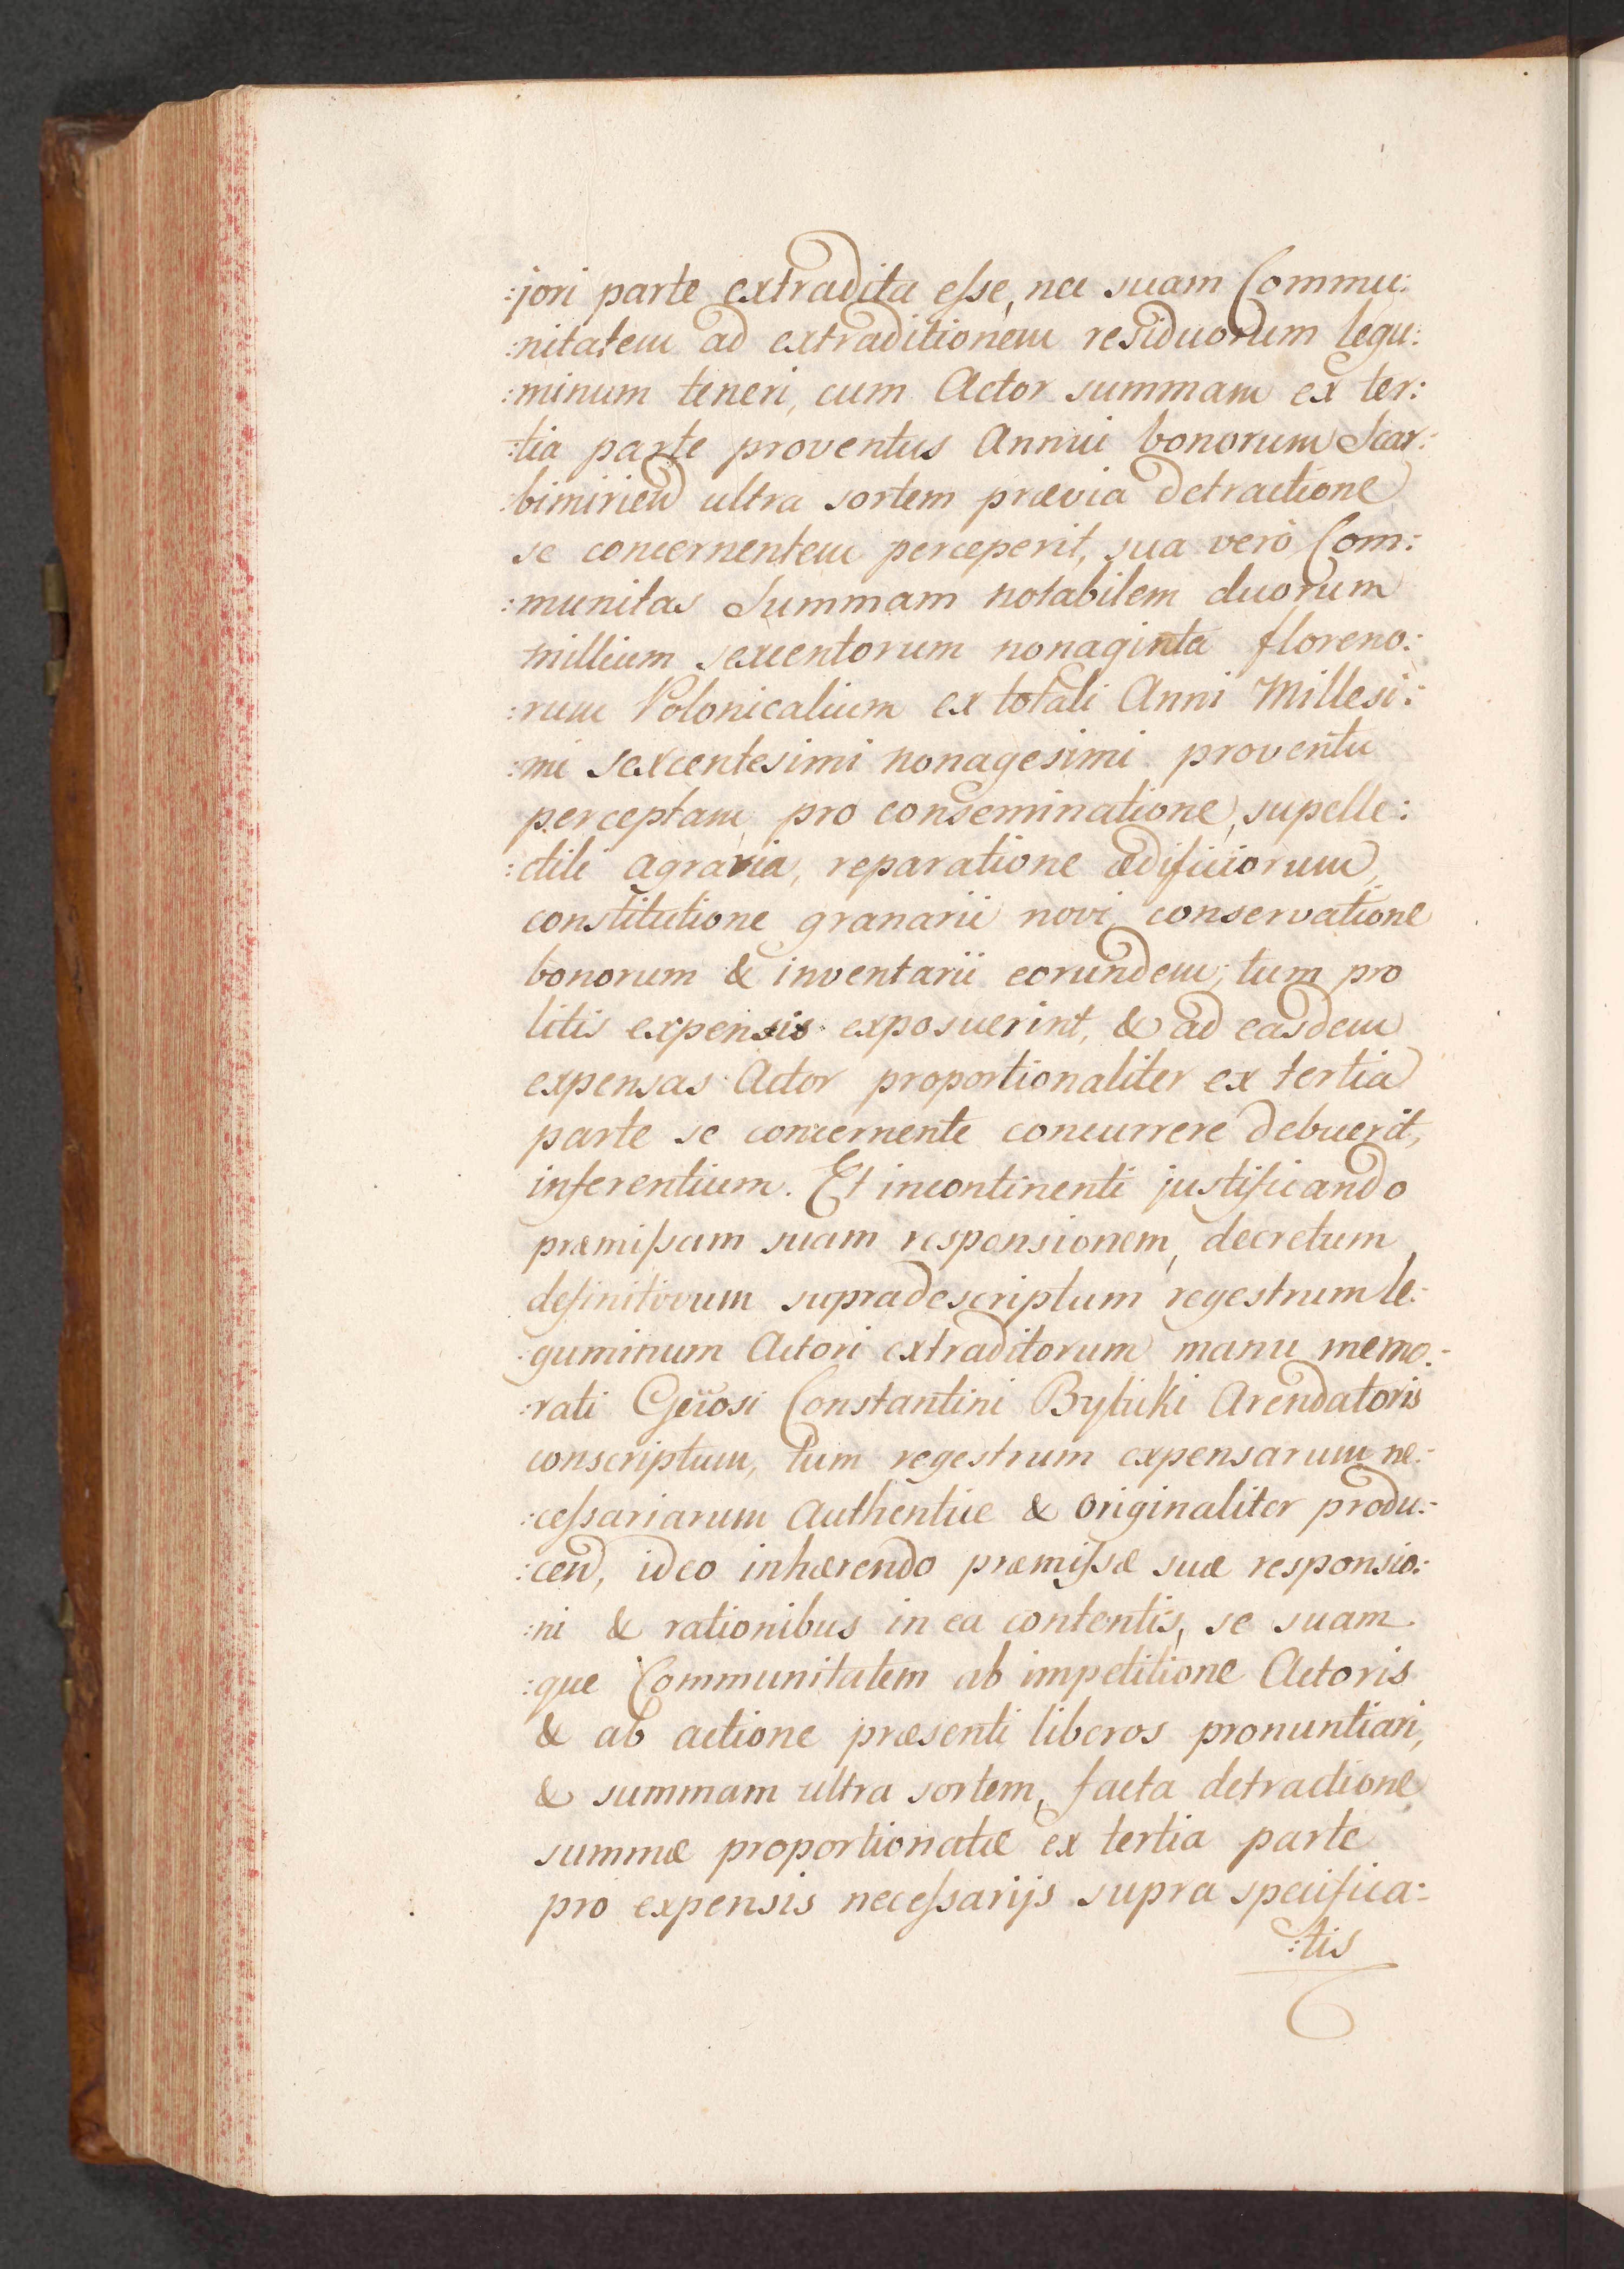 :jori parte extradita esse, nec suam Commu:
:nitatem ad extraditionem residuorum legu:
:minum teneri, cum Actor summam ex ter:
:tia parte proventus Annui bonorum Scar:
:bimiricen ultra sortem prævia detractione
se concernentem perceperit, sua verò Com:
:munitas Summam notabilem duorum
millium sexcentorum nonaginta floreno:
:rum Polonicalium ex totali Anni Millesi:
:mi sexcentesimi nonagesimi proventu
perceptam pro conseminatione, supelle:
:ctili agraria, reparatione ædificiorum,
constitutione granarii novi, conservatione
bonorum & inventarii eorundem, tum pro
litis expensis exposuerint, & ad easdem
expensas Actor proportionaliter ex tertia
parte se concernente concurrere debuerit,
inferentium. Et incontinenti justificando
præmissam suam responsionem, decretum
definitivum supradescriptum, regestrum le:
guminum Actori extraditorum manu memo:
:rati Gen̈osi Constantini Arendatoris
conscriptum, tum regestrum expensarum ne:
:cessariarum Authentice & originaliter produ:
:cen, ideo inhærendo præmissæ suæ responsio:
:ni & rationibus in ea contentis, se suam
:que Communitatem ab impetitione Actoris
& ab actione præsenti liberos pronuntiari,
& summam ultra sortem, facta detractione
summæ proportionatæ ex tertia parte
pro expensis necessarijs supra specifica:
:tis